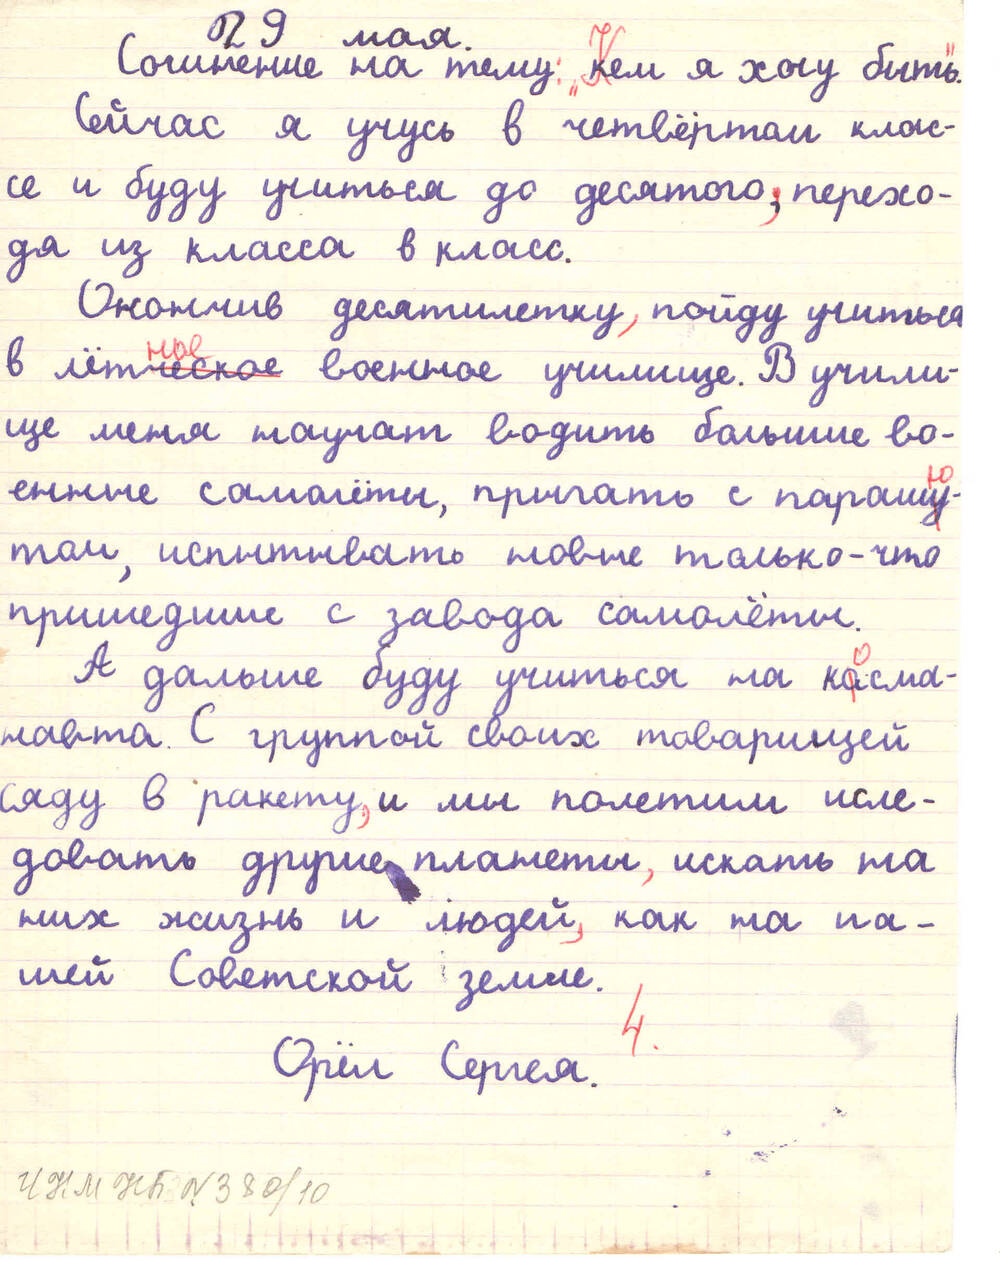 29 мая.
Сочинение на тему: „Кем я хочу быть".
Сейчас я учусь в четвёртом клас-
се и буду учиться до десятого, перехо-
дя из класса в класс.
Окончив десятилетку, пойду учиться
ное
в лётческое военное училище. В учили-
ще меня научат водить большие во-
енные самолёты, прыгать с парашу-
ю
том, испытывать новые только-что
пришедшие с завода самолёты.
о
А дальше буду учиться на касма-
навта. С группой своих товарищей
сяду в ракету, и мы полетим исле-
довать другие планеты, искать на
них жизнь и людей, как на на-
шей Советской земле.
4.
Орёл Сергея.
ЧКМ КП №380/10